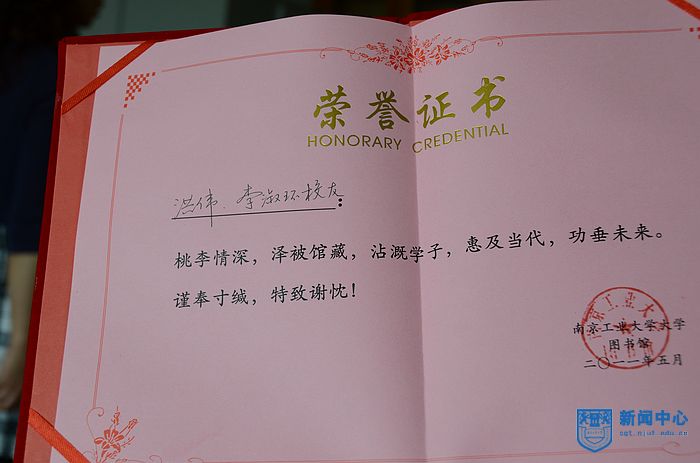 荣誉证书
HONORARY CREDENTIAL
洪伟、李淑环校友:
桃李情深，泽被馆藏，沾溉学子，惠及当代，功垂未来。
谨奉寸绒，特致谢忱！
南京工业大学大学
图书馆
二〇一一年五月
新闻中心